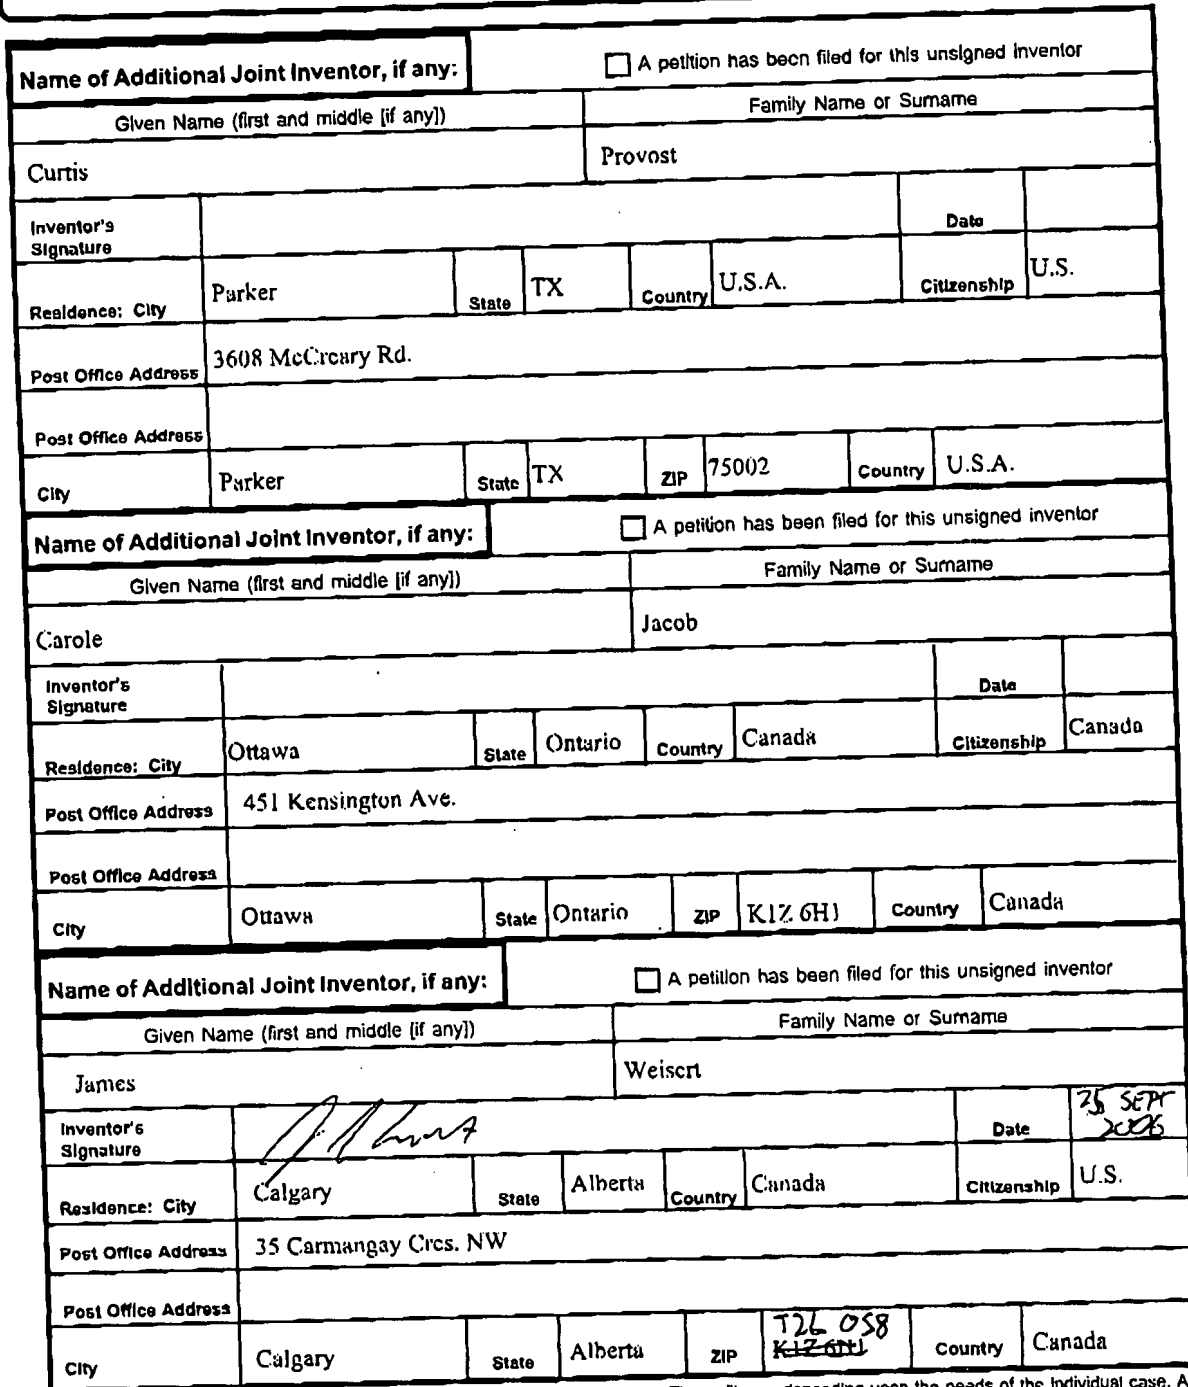 Name of Additional Joint Inventor, if any:
A petition has been filed for this unsigned inventor
Given Name (first and middle [if any])
Family Name or Surname
Curtis
Provost
Inventor's
Signature
Date
Residence: City
Parker
State
TX
Country
U.S.A.
Citizenship
U.S.
Post Office Address
3608 McCreary Rd.
Post Office Address
City
Parker
State
TX
ZIP
75002
Country
U.S.A.
Name of Additional Joint Inventor, if any:
A petition has been filed for this unsigned inventor
Given Name (first and middle [if any])
Family Name or Surname
Carole
Jacob
Inventor's
Signature
Date
Residence: City
Ottawa
State
Ontario
Country
Canada
Citizenship
Canada
Post Office Address
451 Kensington Ave.
Post Office Address
City
Ottawa
State
Ontario
ZIP
K1Z 6H1
Country
Canada
Name of Additional Joint Inventor, if any:
A petition has been filed for this unsigned inventor
Given Name (first and middle [if any])
Family Name or Surname
James
Weisert
Inventor's
Signature
Date
SEPT
2006
Residence: City
Calgary
State
Alberta
Country
Canada
Citizenship
U.S.
Post Office Address
35 Carmangay Cres. NW
Post Office Address
City
Calgary
State
Alberta
ZIP
K1Z 6H1
Country
Canada
depending upon the needs of the individual case. A